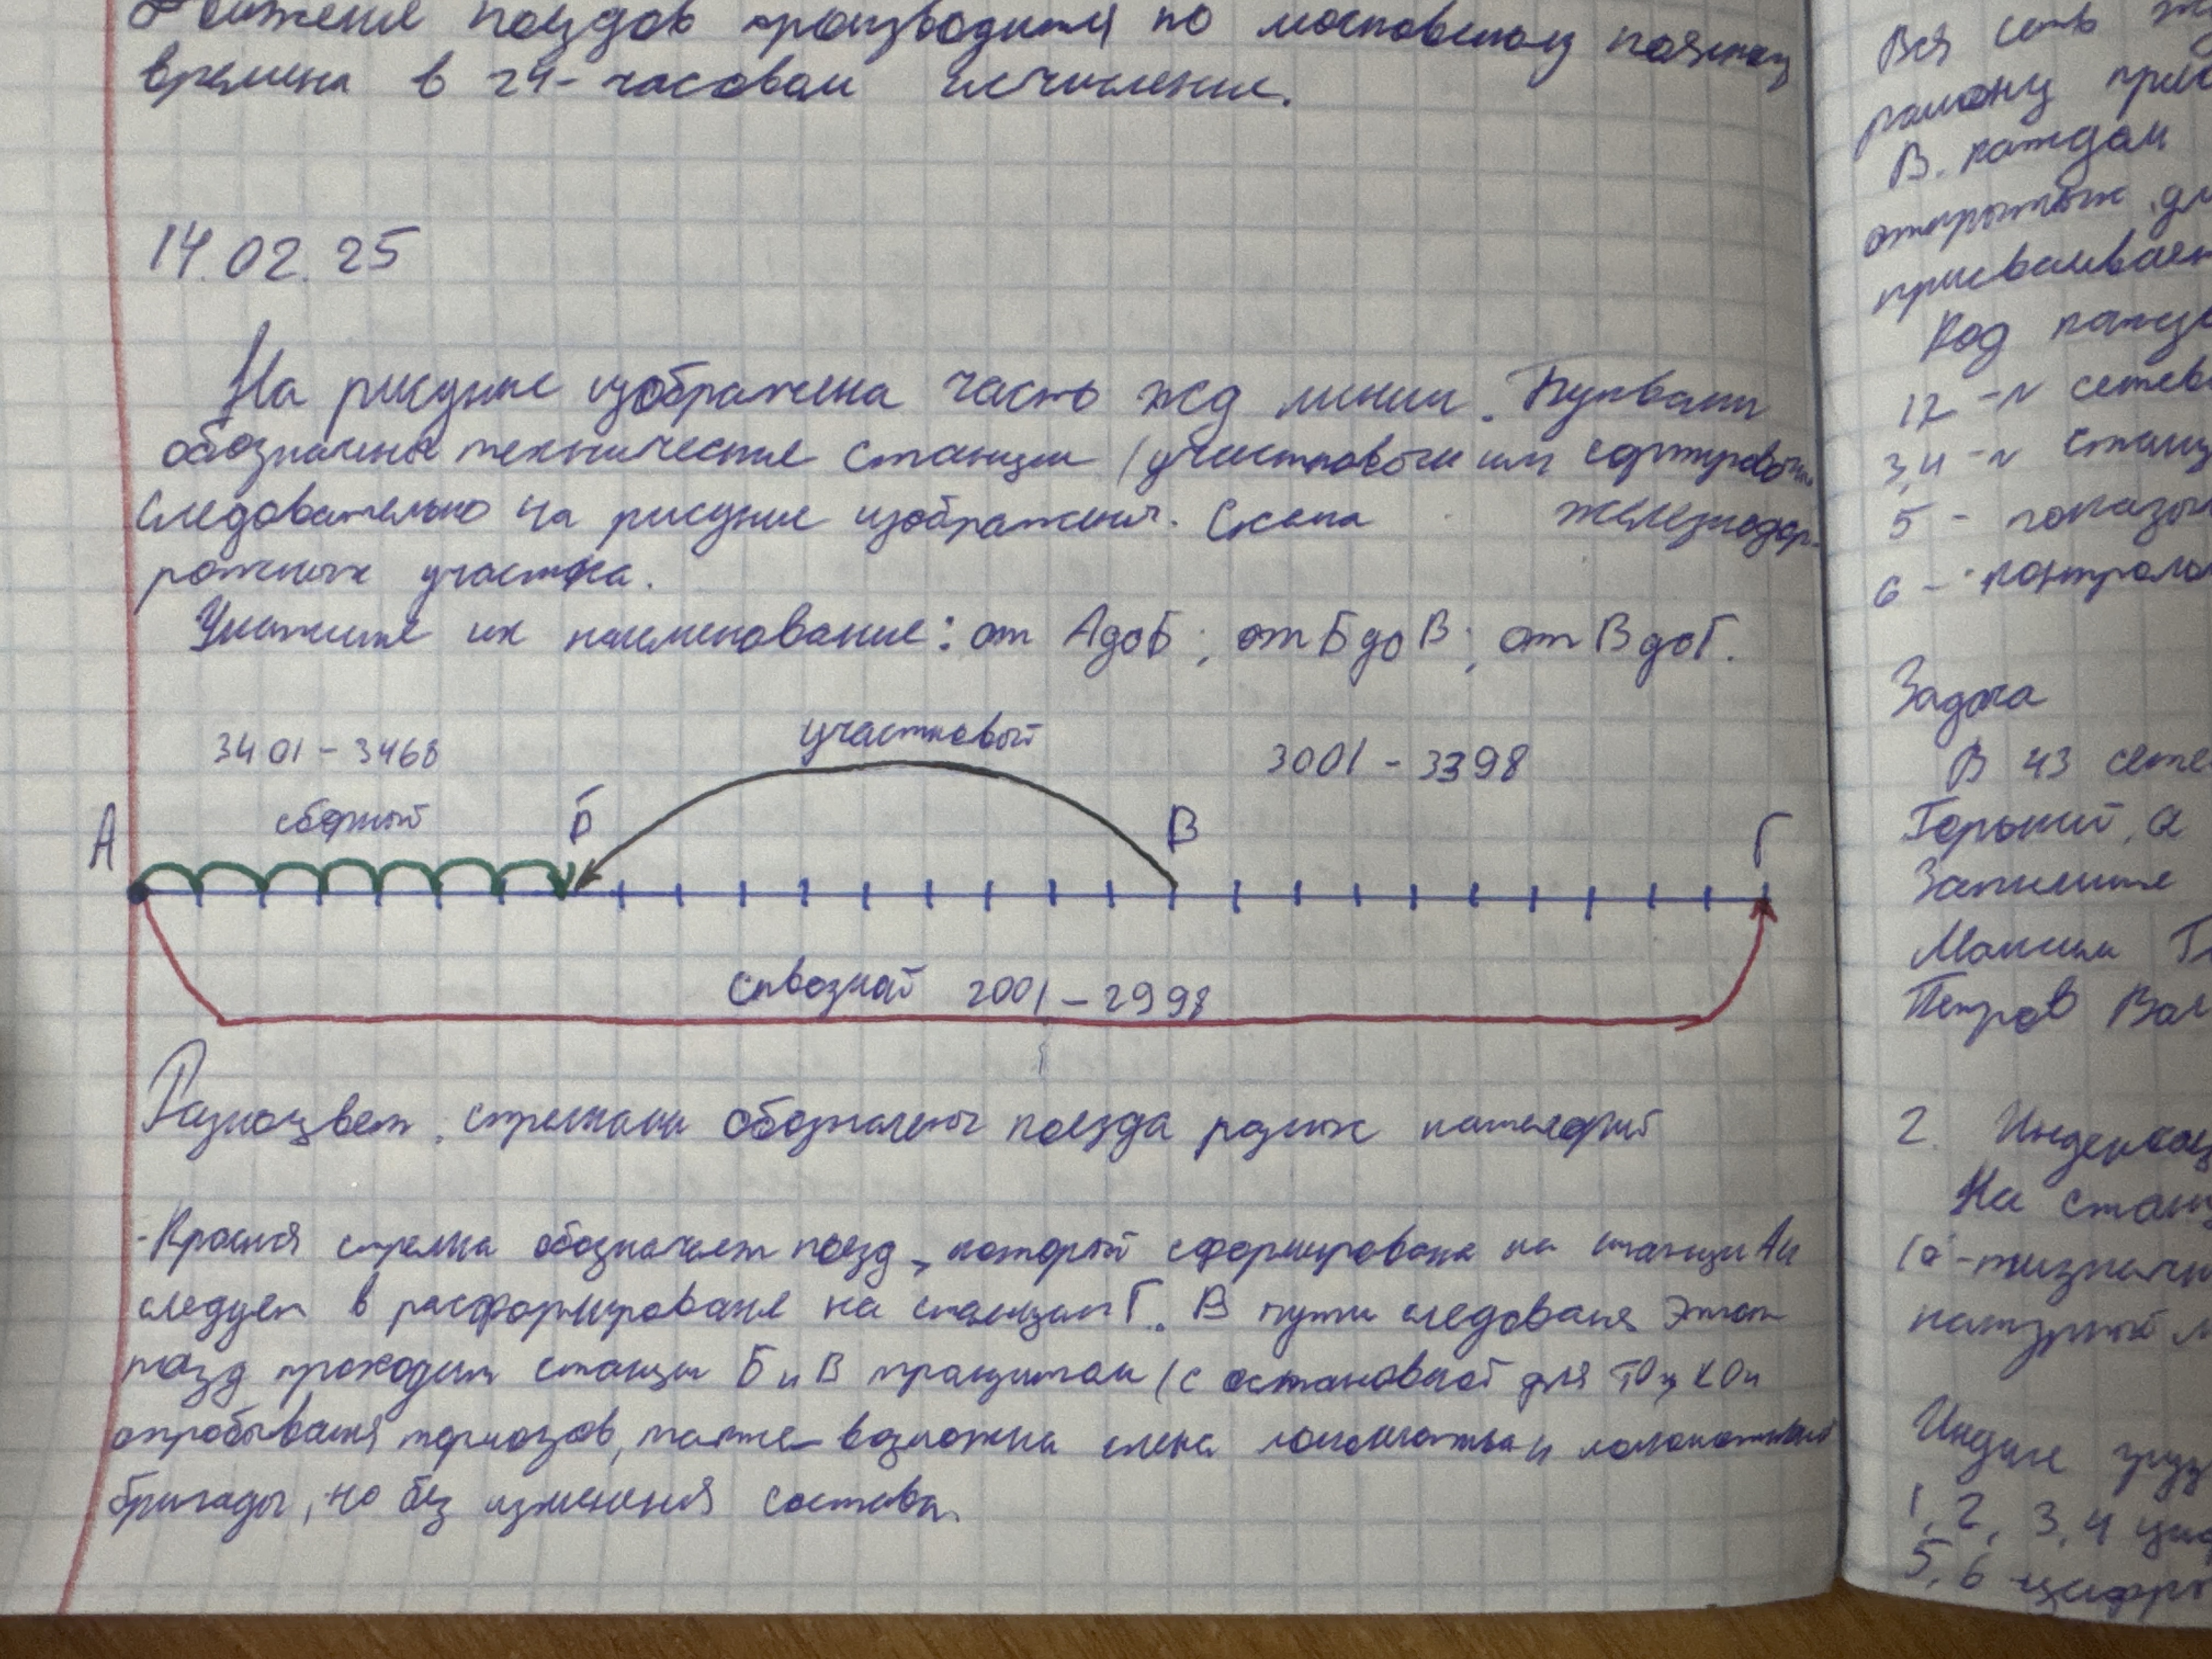 Движение поездов производится по московскому поясному
времени в 24-часовом исчислении.
14.02.25
На рисунке изображена часть жд линии. Буквами
обозначены технические станции (участковые или сортировочн
Следовательно на рисунке изображены. Схема железнодо-
рожных участка.
Укажите их наименование: от А до Б; от Б до В; от В до Г.
3401 - 3468
участковый
3001 - 3398
А
сборный
Б
В
Г
Сквозной 2001 - 2998
Разноцвет. стрелками обозначены поезда разных категорий
- Красная стрелка обозначает поезд, который сформирован на станции А и
следует в расформирование на станцию Г. В пути следования этот
поезд проходит станции Б и В транзитом (с остановкой для ТО, КО и
опробывания тормозов, также возможна смена локомотива и локомотивной
бригады, но без изменения состава.
Вся сеть
району
В. каждом
открытых
присваивает
Код
12 -
сетев
3,4 -
станц
5 - показы
6 - контроль
Задача
В 43 сете
Горький, а
Запишите
Максим
Петров Вал
2.
На стан
натурный
Индекс груз
1, 2, 3, 4
5, 6 цифры